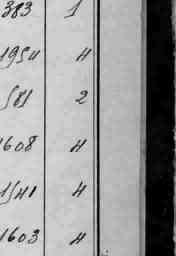 383 1
1954 4
581 2
1608 4
1541 4
1603 4